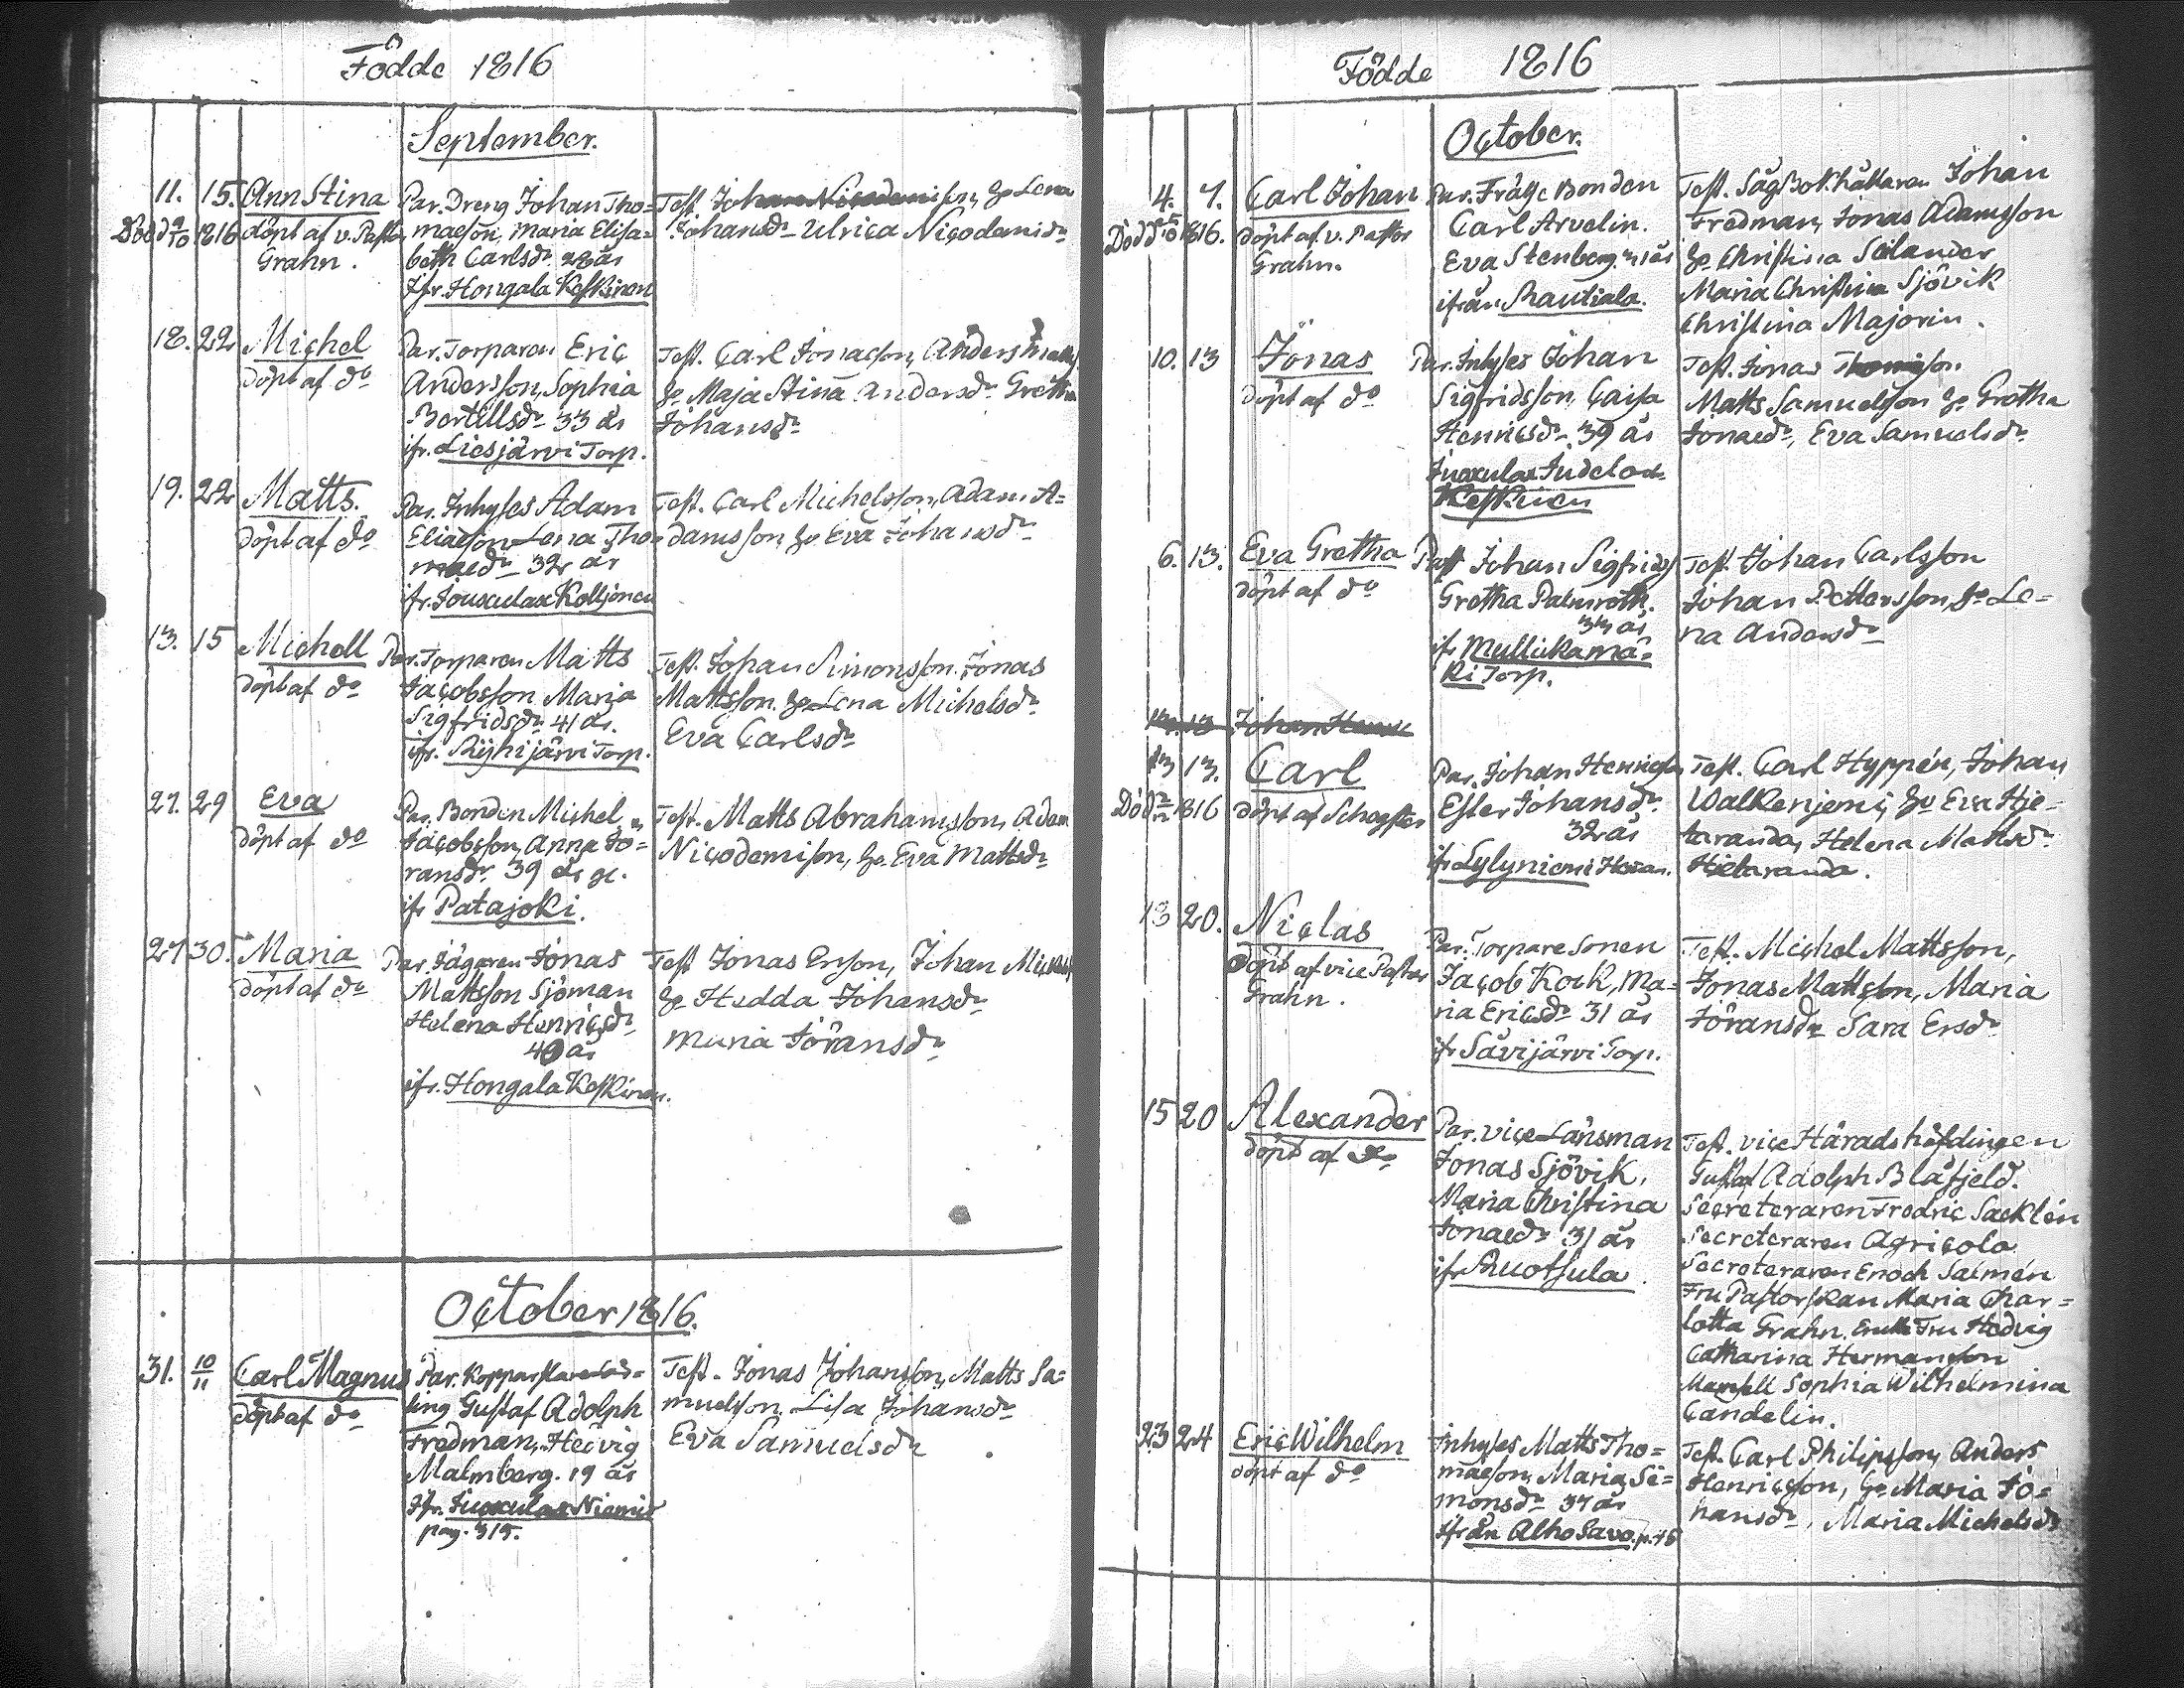 Födde 1816
September.
11. 15. Ann Stina Par. Dreng Johan Tho= Test. Johan Nicodemisson, ho Lena
Död 9/10 1816 döpt af v. Pastor maeson, Maria Elisa= Johansdr Ulrica Nicodemidr
Grahn. beth Carlsdr 28 år
ifr. Hongala Keskinen
18. 22 Michel Par. Torparen Eric Test. Carl Jonaeson, Anders
döpt af do Andersson, Sophia ho Maja Stina Andersdr Gretha
Bertillsdr 33 år Johansdr
ifr. Liesjärvi Torp.
19. 22 Matts. Par. Inhyses Adam Test. Carl Michelsson, Adam A=
döpt af do Eliaeson Lena Tho= damsson, ho Eva Johansdr
maedr 32 år
ifr. Jouxulax Kolljonen
13. 15 Michell Par. Torparen Matts Test. Johan Simonsson. Jonas
döpt af do Jacobsson Maria Mattsson. ho Lena Michelsdr
Sigfridsdr 41 år. Eva Carlsdr
ifr. Ryhijärvi Torp.
27. 29 Eva Par. Bonden Michel Test. Matts Abrahamsson, Adam
döpt af do Jacobsson, Anna Jö= Nicodemison, ho Eva Mattsdr
ransdr 39 år gl.
ifr Patajoki.
27 30. Maria Par. Jägaren Jonas Test Jonas Erson, Johan
döpt af do Mattsson Sjöman ho Hedda Johansdr
Helena Henricsdr Maria Jöransdr
40 år
ifr. Hongala Keskinen.
October 1816.
31. 10/11 Carl Magnus Par. Kopparslare Test. Jonas Johansson, Matts Sa=
döpt af do ling Gustaf Adolph muelson. Lisa Johansdr
Fredman, Hedvig Eva Samuelsdr
Malmberg. 19 år
ifr. Juoxulax Niemis
pag. 315.
Födde 1816
October.
4. 7. Carl Johan Par. Frälse Bonden Test. Såg Bokhållaren Johan
Död 1816. döpt af v. Pastor Carl Arvelin. Fredman, Jonas Adamsson
Grahn. Eva Stenberg. 31 år ho Christina Selander
ifrån Rautiala. Maria Christina Sjövik
Christina Majorin.
10. 13 Jonas Par. Inhyses Johan Test. Jonas Thomsson.
döpt af do Sigfridsson, Caisa Matts Samuelsson ho Gretha
Henricsdr 39 år Jonaedr, Eva Samuelsdr
Juoxulax
Keskinen
6. 13. Eva Gretha Johan Sigfrids Test Johan Carlsson
döpt af do Gretha Palmroth. Johan Pettersson, ho Le=
33 år na Andersdr
ifr Mullikamä=
ki Torp.
13 Johan Henric
13 13. Carl Par. Johan Henricson Test. Carl Hyppén, Johan
Död 1816 döpt af Ester Johansdr Walkenjemi, ho Eva Hje=
32 år taranda, Helena Mattsdr
ifr Lylyniemi Hjetaranda.
13 20. Niclas Par. Torparesonen Test. Michel Mattsson,
döpt af vice Pastor Jacob Kock, Ma= Jonas Mattsson, Maria
Grahn. ria Ericsdr 31 år Jöransdr Sara Ersdr
ifr Savijärvi Torp.
15 20 Alexander Par. vice Länsman Test. vice Häradshöfdingen
döpt af do Jonas Sjövik, Gustaf Adolph Blåfjeld.
Maria Christina Secreteraren Fredric Sacklén
Jonaedr 31 år Secreteraren Agricola
ifr Ruotsula. Secreteraren Enoch Salmén
Fru Pastorskan Maria Char=
lotta Grahn. Fru Hedvig
Catharina Hermanson
Mamsell Sophia Wilhelmina
Candelin.
23 24 Eric Wilhelm Inhyses Matts Tho= Test. Carl Philipsson, Anders
döpt af do maeson, Maria Si= Henricsson, ho Maria Jo=
monsdr 37 år hansdr, Maria Michelsdr
ifrån Alho Savo.